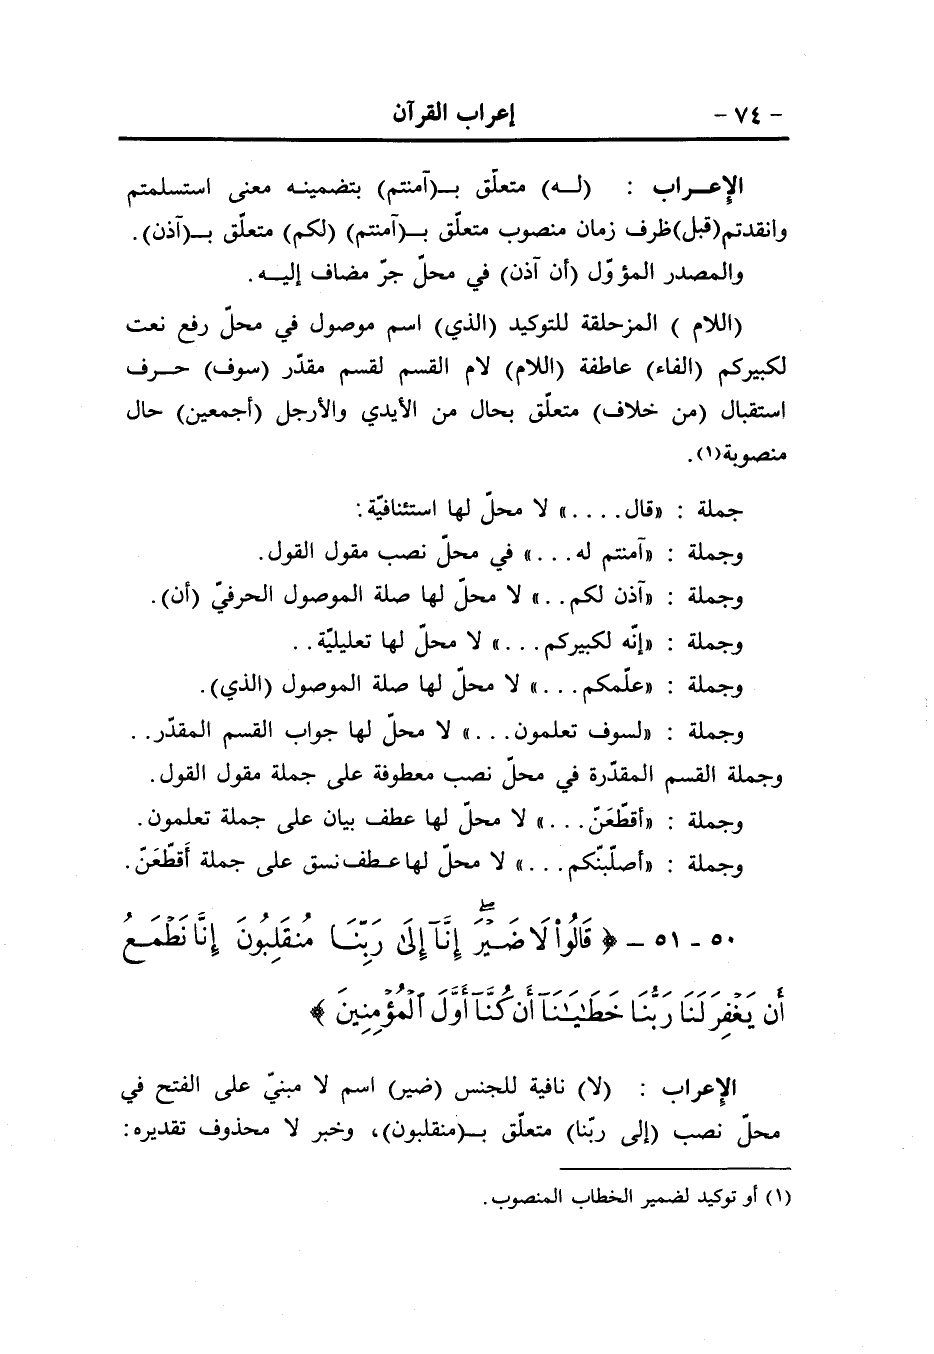 - ٧٤ - إعراب القرآن
الإعـــراب : (لــه) متعلّق بــ(آمنتم) بتضمينـه معنى استسلمتم
وانقدتم(قبل)ظرف زمان منصوب متعلّق بــ(آمنتم) (لكم) متعلّق بــ(آذن).
والمصدر المؤوّل (أن آذن) في محلّ جرّ مضاف إليــه.
(اللام ) المزحلقة للتوكيد (الذي) اسم موصول في محلّ رفع نعت
لكبيركم (الفاء) عاطفة (اللام) لام القسم لقسم مقدّر (سوف) حـــرف
استقبال (من خلاف) متعلّق بحال من الأيدي والأرجل (أجمعين) حال
منصوبة(١).
جملة : «قال....» لا محلّ لها استئنافيّة:
وجملة : «آمنتم له...» في محلّ نصب مقول القول.
وجملة : «آذن لكم..» لا محلّ لها صلة الموصول الحرفيّ (أن).
وجملة : «إنّه لكبيركم...» لا محلّ لها تعليليّة..
وجملة : «علّمكم...» لا محلّ لها صلة الموصول (الذي).
وجملة : «لسوف تعلمون...» لا محلّ لها جواب القسم المقدّر..
وجملة القسم المقدّرة في محلّ نصب معطوفة على جملة مقول القول.
وجملة : «أقطّعَنّ...» لا محلّ لها عطف بيان على جملة تعلمون.
وجملة : «أصلّبنّكم...» لا محلّ لها عـطف نسق على جملة أَقطّعَنّ.
٥٠ - ٥١ - ﴿ قَالُواْ لَا ضَيْرَۖ إِنَّآ إِلَىٰ رَبِّنَا مُنقَلِبُونَ إِنَّا نَطْمَعُ
أَن يَغْفِرَ لَنَا رَبُّنَا خَطَٰيَٰنَآ أَن كُنَّآ أَوَّلَ ٱلْمُؤْمِنِينَ ﴾
الإعراب : (لا) نافية للجنس (ضير) اسم لا مبنيّ على الفتح في
محلّ نصب (إلى ربّنا) متعلّق بــ(منقلبون)، وخبر لا محذوف تقديره:
(١) أو توكيد لضمير الخطاب المنصوب.